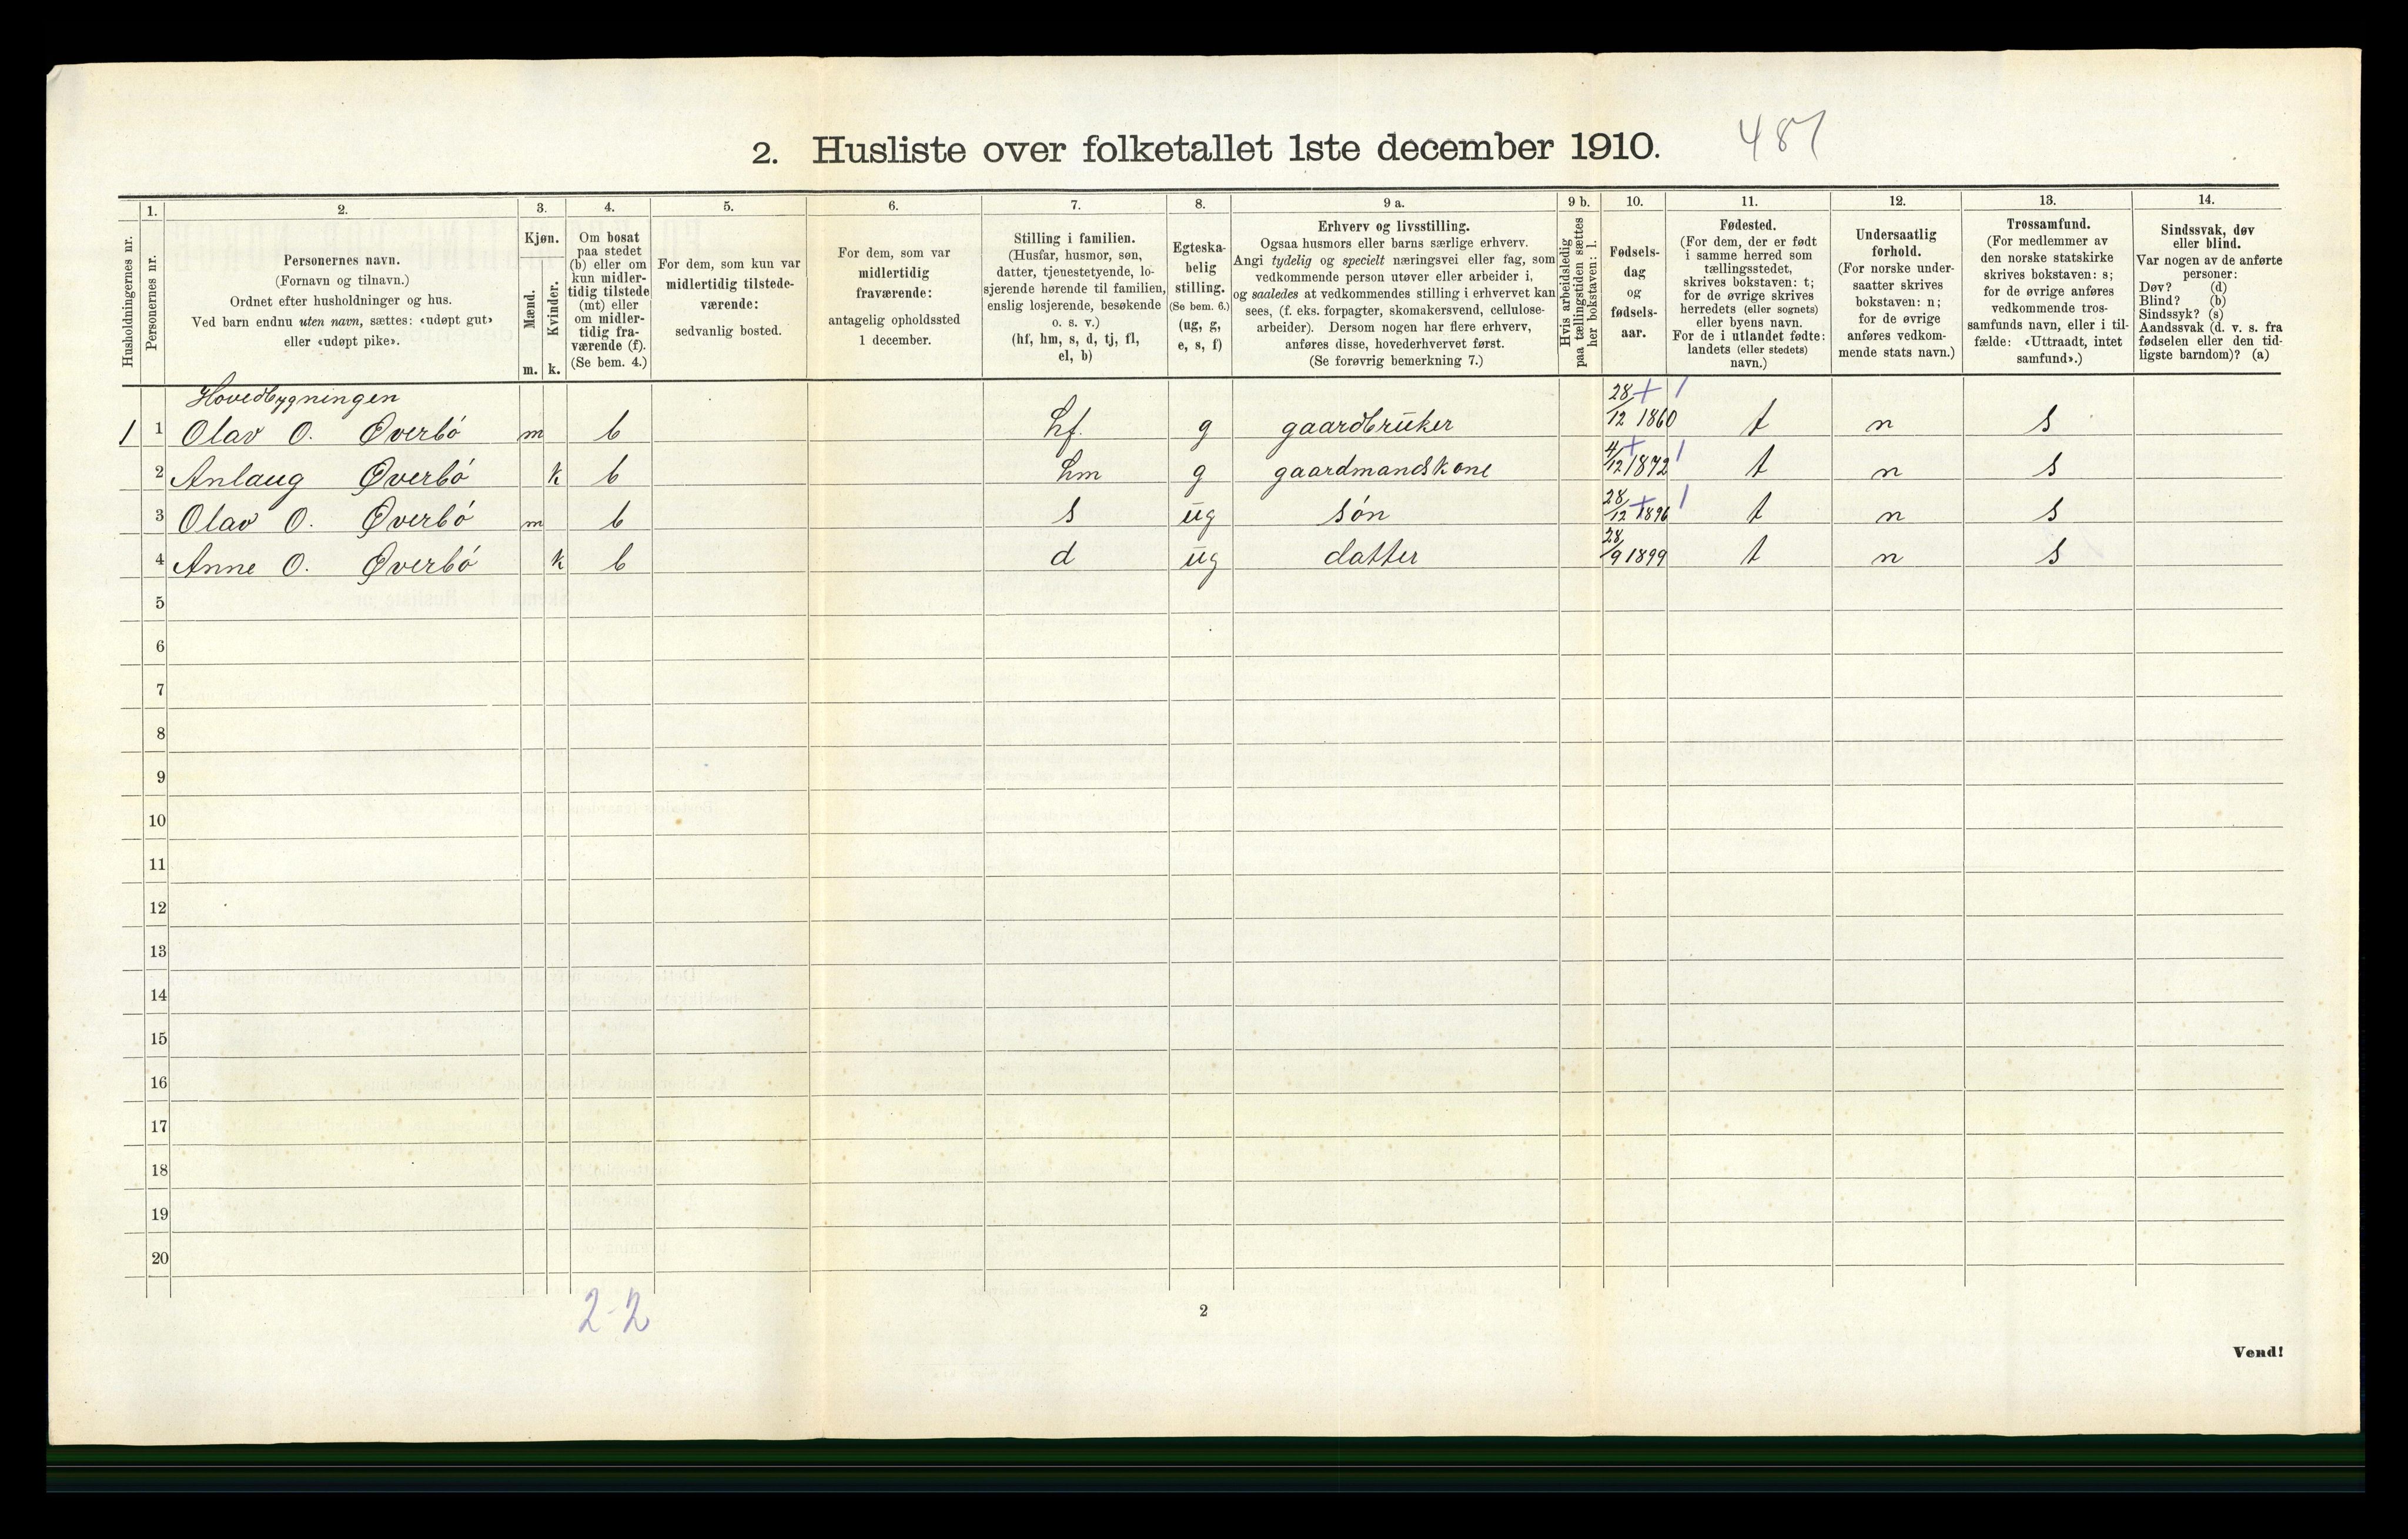 2. Husliste over folketallet 1ste december 1910. 487
Husholdningernes nr.
1.
Personernes nr.
2.
Personernes navn.
(Fornavn og tilnavn.)
Ordnet efter husholdninger og hus.
Ved barn endnu uten navn, sættes: «udøpt gut»
eller «udøpt pike».
3.
Kjøn.
Mænd.
Kvinder.
m. k.
4.
Om bosat
paa stedet
(b) eller om
kun midler-
tidig tilstede
(mt) eller
om midler-
tidig fra-
værende (f).
(Se bem. 4.)
5.
For dem, som kun var
midlertidig tilstede-
værende:
sedvanlig bosted.
6.
For dem, som var
midlertidig
fraværende:
antagelig opholdssted
1 december.
7.
Stilling i familien.
(Husfar, husmor, søn,
datter, tjenestetyende, lo-
sjerende hørende til familien,
enslig losjerende, besøkende
o. s. v.)
(hf, hm, s, d, tj, fl,
el, b)
8.
Egteska-
belig
stilling.
(Se bem. 6.)
(ug, g,
e, s, f)
9 a.
Erhverv og livsstilling.
Ogsaa husmors eller barns særlige erhverv.
Angi tydelig og specielt næringsvei eller fag, som
vedkommende person utøver eller arbeider i,
og saaledes at vedkommendes stilling i erhvervet kan
sees, (f. eks. forpagter, skomakersvend, cellulose-
arbeider). Dersom nogen har flere erhverv,
anføres disse, hovederhvervet først.
(Se forøvrig bemerkning 7.)
9 b.
Hvis arbeidsledig
paa tællingstiden sættes
her bokstaven: l.
10.
Fødsels-
dag
og
fødsels-
aar.
11.
Fødested.
(For dem, der er født
i samme herred som
tællingsstedet,
skrives bokstaven: t;
for de øvrige skrives
herredets (eller sognets)
eller byens navn.
For de i utlandet fødte:
landets (eller stedets)
navn.)
12.
Undersaatlig
forhold.
(For norske under-
saatter skrives
bokstaven: n;
for de øvrige
anføres vedkom-
mende stats navn.)
13.
Trossamfund.
(For medlemmer av
den norske statskirke
skrives bokstaven: s;
for de øvrige anføres
vedkommende tros-
samfunds navn, eller i til-
fælde: «Uttraadt, intet
samfund».)
14.
Sindssvak, døv
eller blind.
Var nogen av de anførte
personer:
Døv? (d)
Blind? (b)
Sindssyk? (s)
Aandssvak (d. v. s. fra
fødselen eller den tid-
ligste barndom)? (a)
Hovedbygningen
1 1 Olav O. Øverbó m b hf. g gaardbruker 28/12 1860 t n s
2 Anlaug Øverbó k b hm g gaardmandskone 4/12 1872 t n s
3 Olav O. Øverbó m b s ug són 28/12 1896 t n s
4 Anne O. Øverbó k b d ug datter 28/9 1899 t n s
5
6
7
8
9
10
11
12
13
14
15
16
17
18
19
20
2-2
2
Vend!